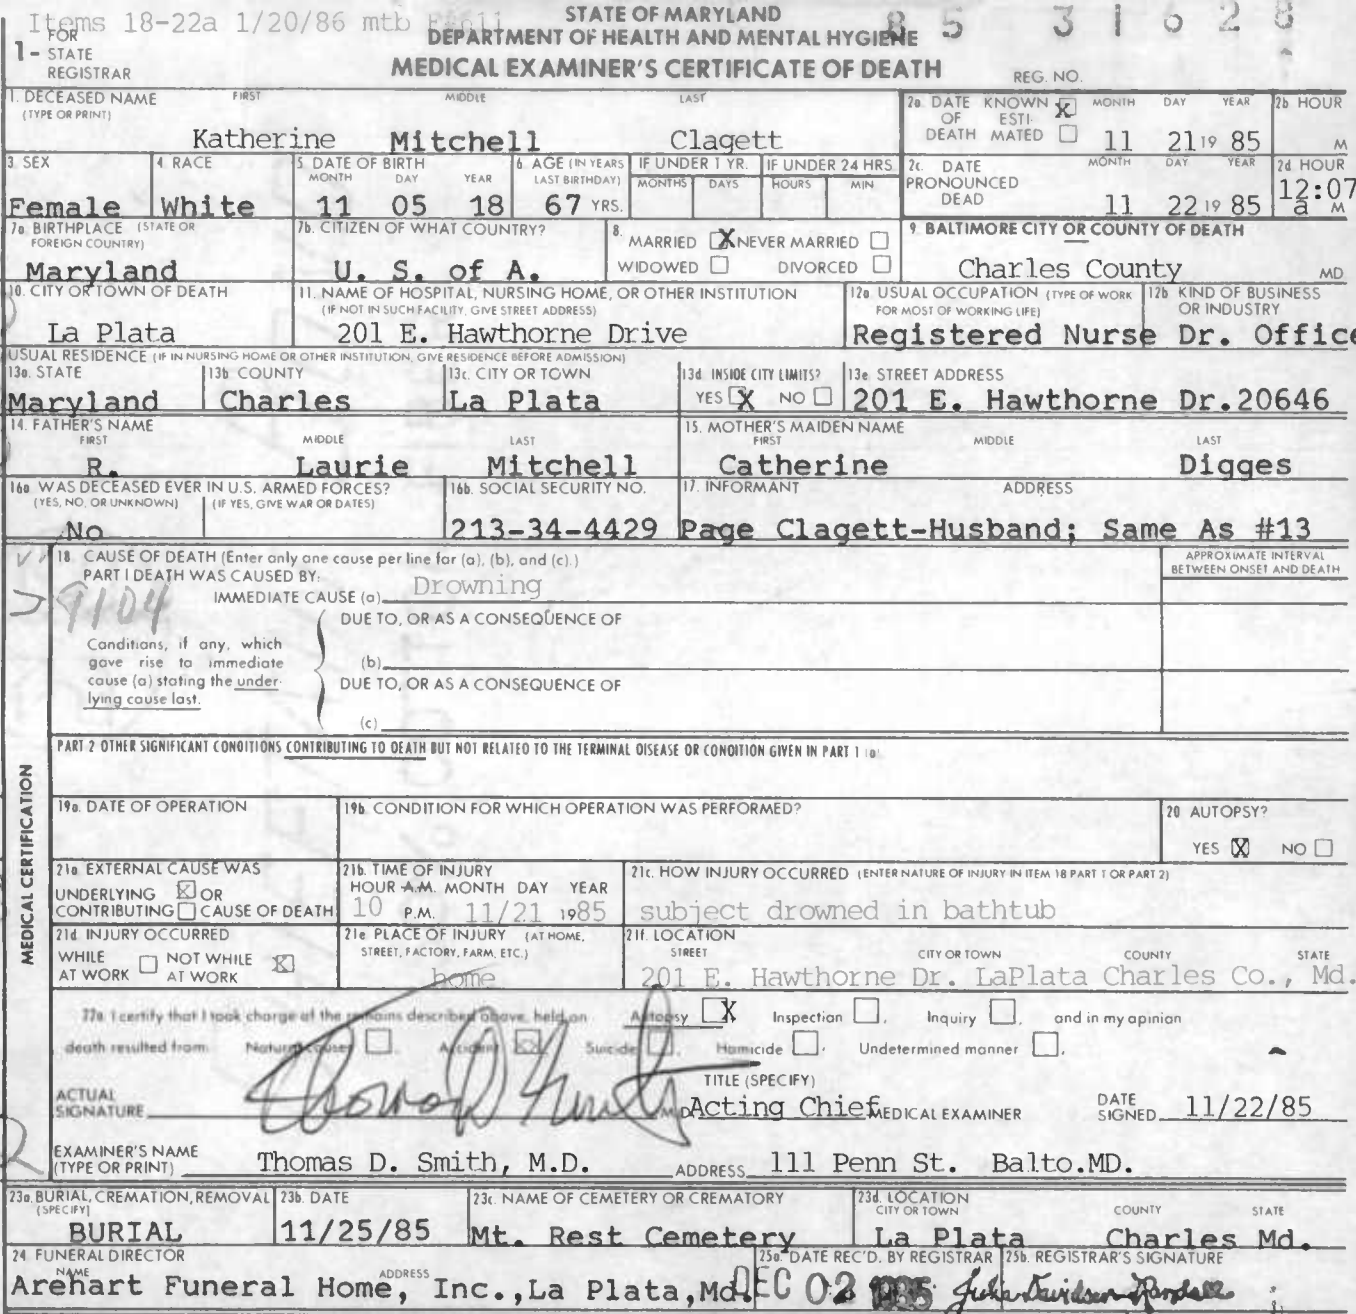 Items 18-22a 1/20/86 mtb
STATE OF MARYLAND
DEPARTMENT OF HEALTH AND MENTAL HYGIENE
85 31628
1- FOR STATE REGISTRAR
MEDICAL EXAMINER'S CERTIFICATE OF DEATH
REG. NO.
1. DECEASED NAME (TYPE OR PRINT) FIRST MIDDLE LAST
Katherine Mitchell Clagett
2a. DATE OF DEATH KNOWN X ESTIMATED MONTH DAY YEAR 2b HOUR
11 21 19 85 M
3. SEX 4. RACE 5. DATE OF BIRTH MONTH DAY YEAR 6. AGE (IN YEARS LAST BIRTHDAY) IF UNDER 1 YR. MONTHS DAYS IF UNDER 24 HRS HOURS MIN.
Female White 11 05 18 67 YRS.
2c. DATE PRONOUNCED DEAD MONTH DAY YEAR 2d HOUR
11 22 19 85 12:07 a M
7a. BIRTHPLACE (STATE OR FOREIGN COUNTRY)
Maryland
7b. CITIZEN OF WHAT COUNTRY?
U. S. of A.
8. MARRIED X NEVER MARRIED
WIDOWED DIVORCED
9. BALTIMORE CITY OR COUNTY OF DEATH
Charles County MD
10. CITY OR TOWN OF DEATH
La Plata
11. NAME OF HOSPITAL, NURSING HOME, OR OTHER INSTITUTION
(IF NOT IN SUCH FACILITY, GIVE STREET ADDRESS)
201 E. Hawthorne Drive
12a. USUAL OCCUPATION (TYPE OF WORK FOR MOST OF WORKING LIFE)
Registered Nurse
12b. KIND OF BUSINESS OR INDUSTRY
Dr. Office
USUAL RESIDENCE (IF IN NURSING HOME OR OTHER INSTITUTION, GIVE RESIDENCE BEFORE ADMISSION)
13a. STATE 13b. COUNTY 13c. CITY OR TOWN 13d. INSIDE CITY LIMITS? 13e. STREET ADDRESS
Maryland Charles La Plata YES X NO 201 E. Hawthorne Dr. 20646
14. FATHER'S NAME FIRST MIDDLE LAST
R. Laurie Mitchell
15. MOTHER'S MAIDEN NAME FIRST MIDDLE LAST
Catherine Digges
16a. WAS DECEASED EVER IN U.S. ARMED FORCES?
(YES, NO, OR UNKNOWN) (IF YES, GIVE WAR OR DATES)
No
16b. SOCIAL SECURITY NO.
213-34-4429
17. INFORMANT ADDRESS
Page Clagett-Husband; Same As #13
MEDICAL CERTIFICATION
18. CAUSE OF DEATH (Enter only one cause per line for (a), (b), and (c).)
APPROXIMATE INTERVAL BETWEEN ONSET AND DEATH
PART I DEATH WAS CAUSED BY:
IMMEDIATE CAUSE (a) Drowning
9104
DUE TO, OR AS A CONSEQUENCE OF
Conditions, if any, which
gave rise to immediate
cause (a) stating the under-
lying cause last.
(b)
DUE TO, OR AS A CONSEQUENCE OF
(c)
PART 2 OTHER SIGNIFICANT CONDITIONS CONTRIBUTING TO DEATH BUT NOT RELATED TO THE TERMINAL DISEASE OR CONDITION GIVEN IN PART 1 (a)
19a. DATE OF OPERATION
19b. CONDITION FOR WHICH OPERATION WAS PERFORMED?
20 AUTOPSY?
YES X NO
21a. EXTERNAL CAUSE WAS
UNDERLYING X OR
CONTRIBUTING CAUSE OF DEATH
21b. TIME OF INJURY
HOUR A.M. MONTH DAY YEAR
10 P.M. 11/21 1985
21c. HOW INJURY OCCURRED (ENTER NATURE OF INJURY IN ITEM 18 PART 1 OR PART 2)
subject drowned in bathtub
21d. INJURY OCCURRED
WHILE AT WORK NOT WHILE AT WORK X
21e. PLACE OF INJURY (AT HOME, STREET, FACTORY, FARM, ETC.)
home
21f. LOCATION
STREET CITY OR TOWN COUNTY STATE
201 E. Hawthorne Dr. LaPlata Charles Co., Md.
22a. I certify that I took charge of the remains described above, held an Autopsy X Inspection , Inquiry , and in my opinion
death resulted from: Natural causes , Accident X , Suicide , Homicide , Undetermined manner .
ACTUAL SIGNATURE Thomas D. Smith M.D.
TITLE (SPECIFY)
Acting Chief MEDICAL EXAMINER
DATE SIGNED 11/22/85
EXAMINER'S NAME (TYPE OR PRINT) Thomas D. Smith, M.D. ADDRESS 111 Penn St. Balto.MD.
23a. BURIAL, CREMATION, REMOVAL (SPECIFY)
BURIAL
23b. DATE
11/25/85
23c. NAME OF CEMETERY OR CREMATORY
Mt. Rest Cemetery
23d. LOCATION
CITY OR TOWN COUNTY STATE
La Plata Charles Md.
24. FUNERAL DIRECTOR
NAME ADDRESS
Arehart Funeral Home, Inc., La Plata, Md.
25a. DATE REC'D. BY REGISTRAR
DEC 02 1985
25b. REGISTRAR'S SIGNATURE
Julia Davidson-Randall